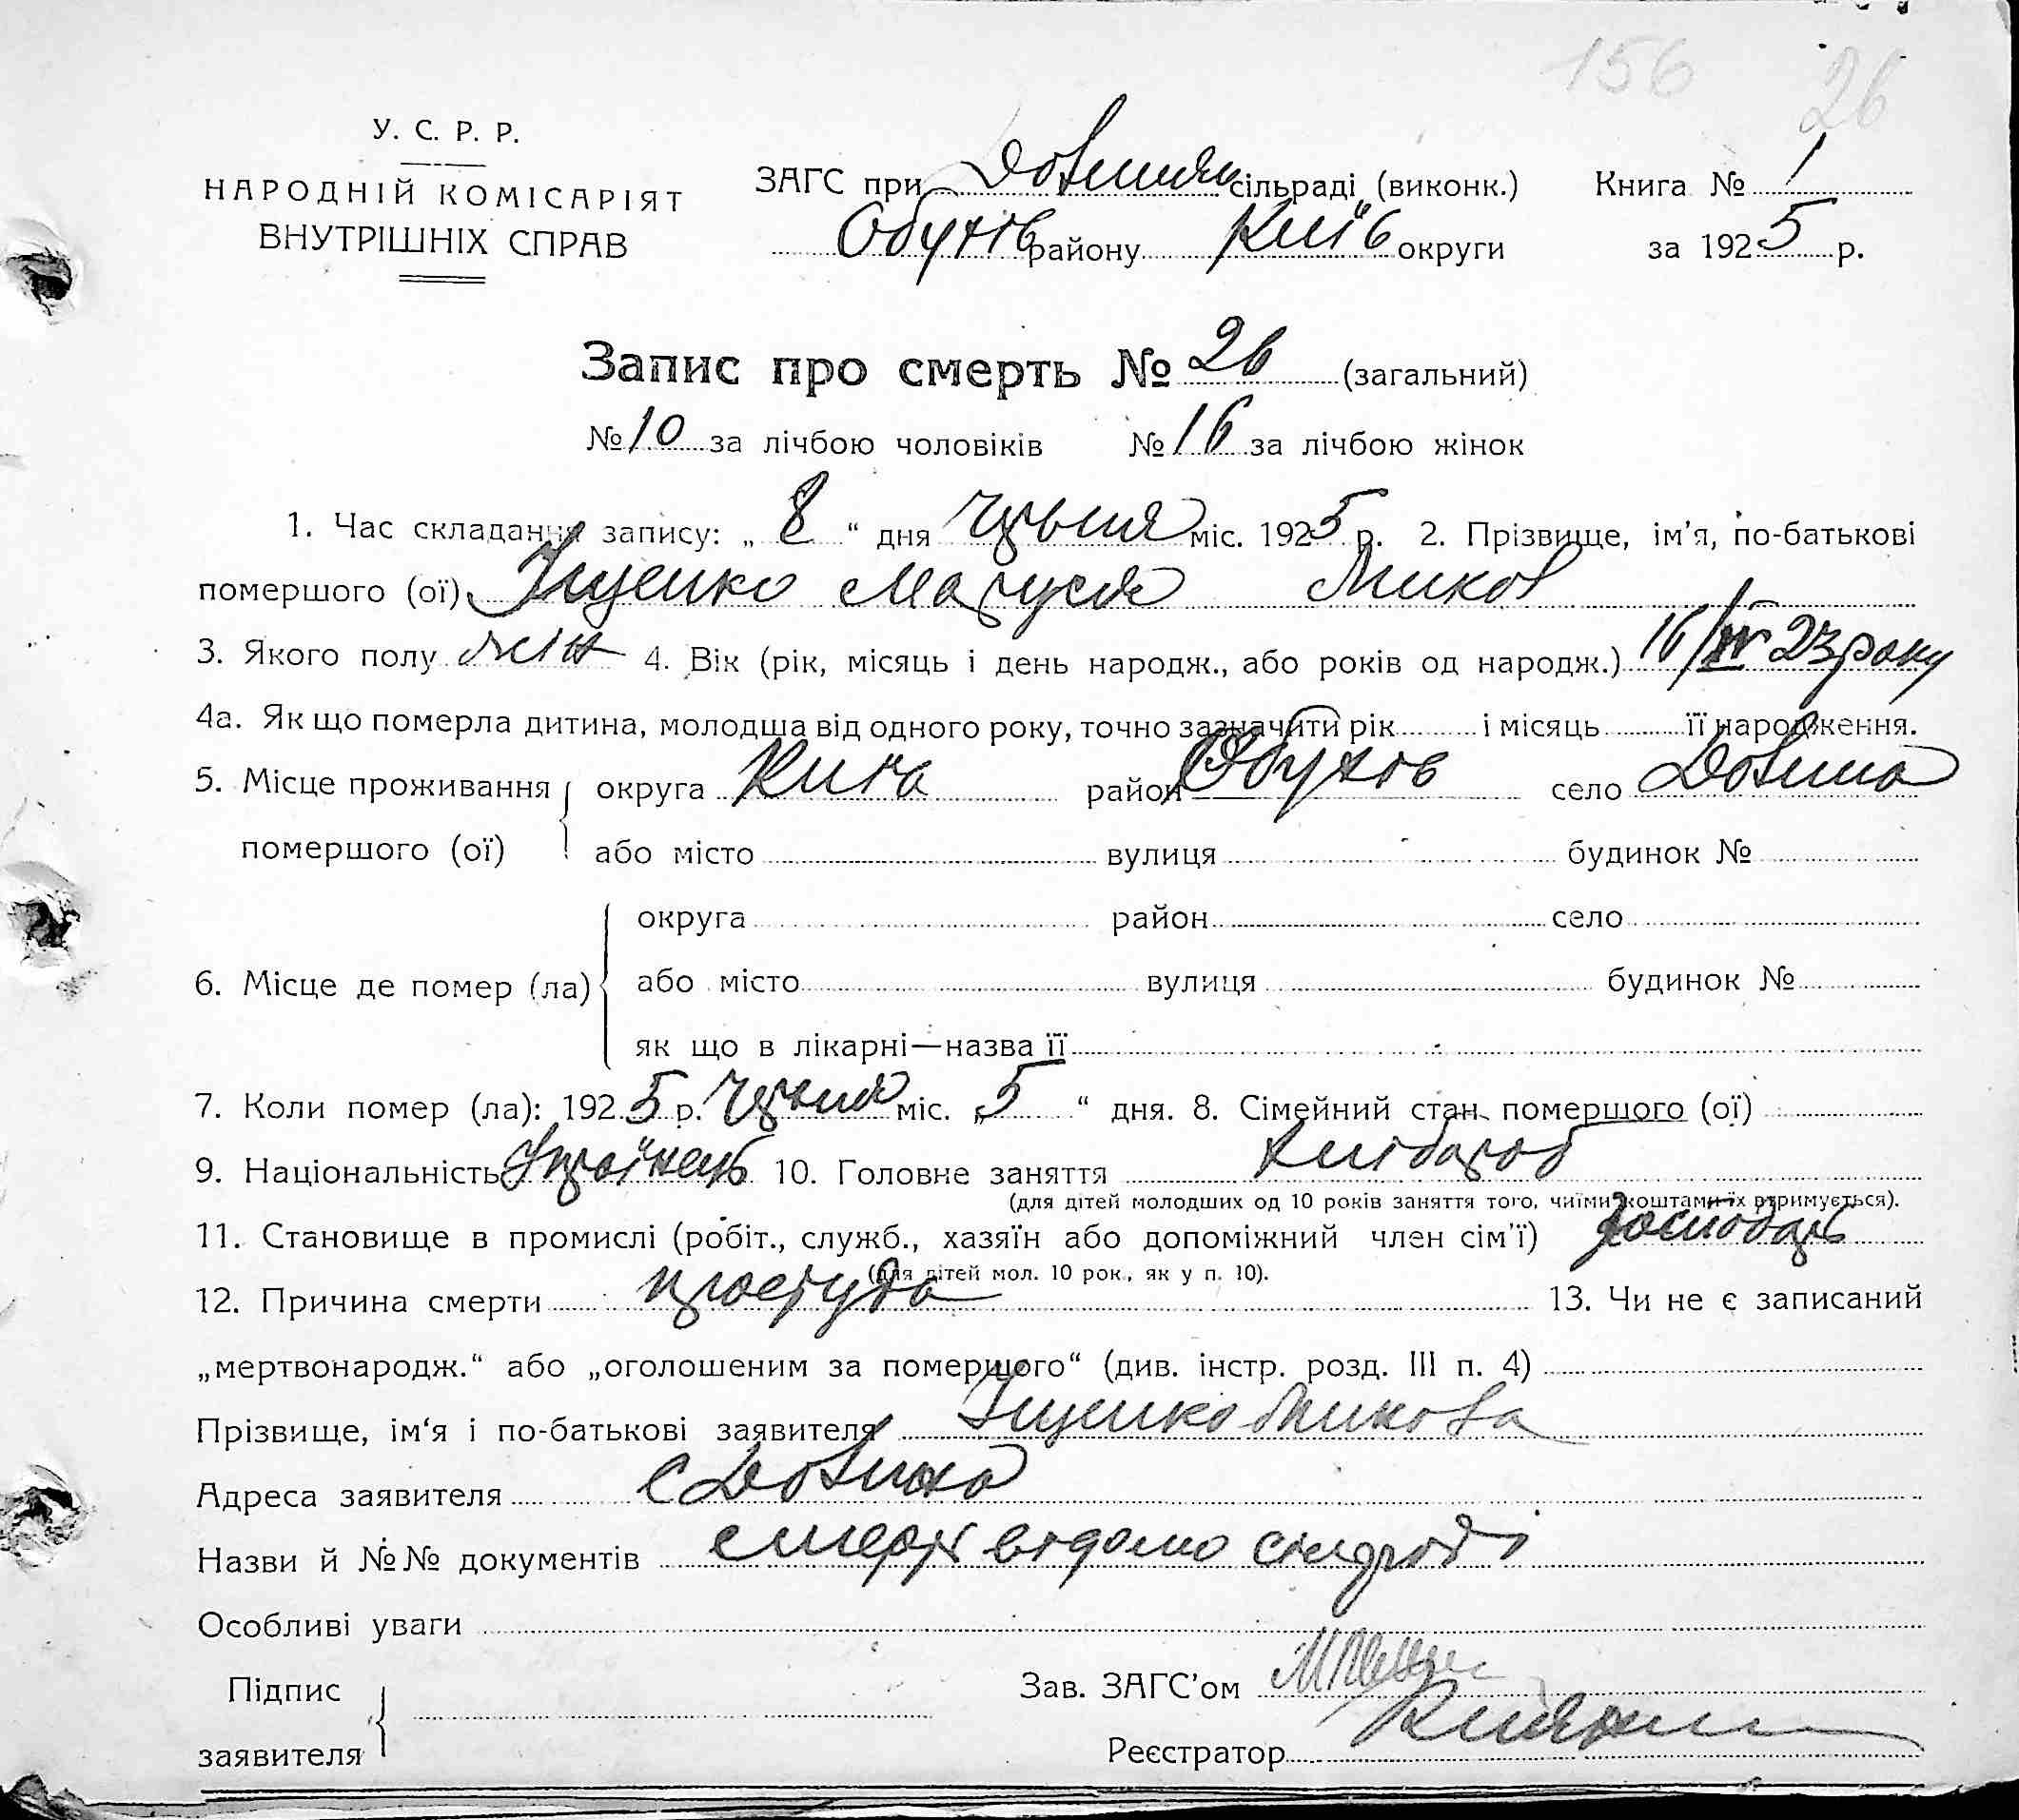 156 26
У. С. Р. Р.
НАРОДНІЙ КОМІСАРІЯТ
ВНУТРІШНІХ СПРАВ
ЗАГС при сільраді (виконк.) Книга № 1
Обухів району Київ округи за 1925 р.
Запис про смерть № 26 (загальний)
№ 10 за лічбою чоловіків № 16 за лічбою жінок
1. Час складання запису: „ 8 “ дня червня міс. 1925 р. 2. Прізвище, ім'я, по-батькові
помершого (ої) Іщенко Маруся Миков
3. Якого полу жін 4. Вік (рік, місяць і день народж., або років од народж.) 16/ 23 року
4а. Як що померла дитина, молодша від одного року, точно зазначити рік і місяць її народження.
5. Місце проживання округа район Обухов село Довина
помершого (ої) або місто вулиця будинок №
округа район село
6. Місце де помер (ла) або місто вулиця будинок №
як що в лікарні—назва її
7. Коли помер (ла): 1925 р. червня міс. „ 5 “ дня. 8. Сімейний стан помершого (ої)
9. Національність Україн 10. Головне заняття хлібороб
(для дітей молодших од 10 років заняття того, чиїми коштами їх втримується).
11. Становище в промислі (робіт., служб., хазяїн або допоміжний член сім'ї) господарь
(для дітей мол. 10 рок., як у п. 10).
12. Причина смерти простуда 13. Чи не є записаний
„мертвонародж.“ або „оголошеним за помершого“ (див. інстр. розд. III п. 4)
Прізвище, ім'я і по-батькові заявителя Іщенко Микова
Адреса заявителя с Довина
Назви й №№ документів смерт відомо сільраді
Особливі уваги
Підпис
заявителя
Зав. ЗАГС'ом
Реєстратор